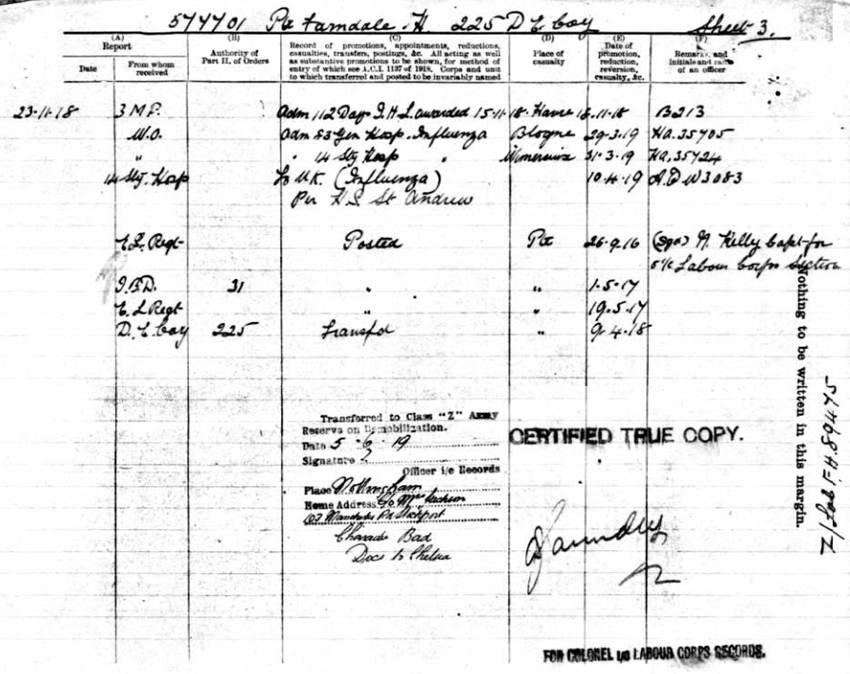 574701 Pte Farndale. H 225 D E Coy Sheet 3.
(A)
Report
Date
From whom received
(B)
Authority of Part II. of Orders
(C)
Record of promotions, appointments, reductions,
casualties, transfers, postings, &c. All acting as well
as substantive promotions to be shown, for method of
entry of which see A.C.I. 1137 of 1918. Corps and unit
to which transferred and posted to be invariably named
(D)
Place of casualty
(E)
Date of promotion, reduction, reversion, casualty, &c.
(F)
Remarks, and initials and rank of an officer
23-11-18 3 M P. Adm 112 Days I.H.L. awarded 15-11-18. Havre 18-11-18 B213
W.O. Adm 83 Gen Hosp. Influenza Blogne 29-3-19 Ha.35705
" " 14 Sty Hosp " Wimereux 31-3-19 Ha.35724
14 Sty. Hosp To U.K. (Influenza) 10-4-19 W3083
Per H.S. St Andrew
E.L. Regt Posted Pte 26-9-16 (sgd) N. Kelly Capt for
o/c Labour Corps Section
I.B.D. 31 " " 1-5-17
E L Regt " " 19.5.17
D. E. Coy 225 Transfd " 9-4-18
Transferred to Class "Z" Army
Reserve on Demobilization.
Date 5-6-19
Signature ?
Officer i/c Records
Place Nottingham
Home Address Jackson
Stockport
Character Bad
Docs to Chelsea
CERTIFIED TRUE COPY.
FOR COLONEL i/c LABOUR CORPS RECORDS.
Nothing to be written in this margin.
Z/Lab F.H.89475